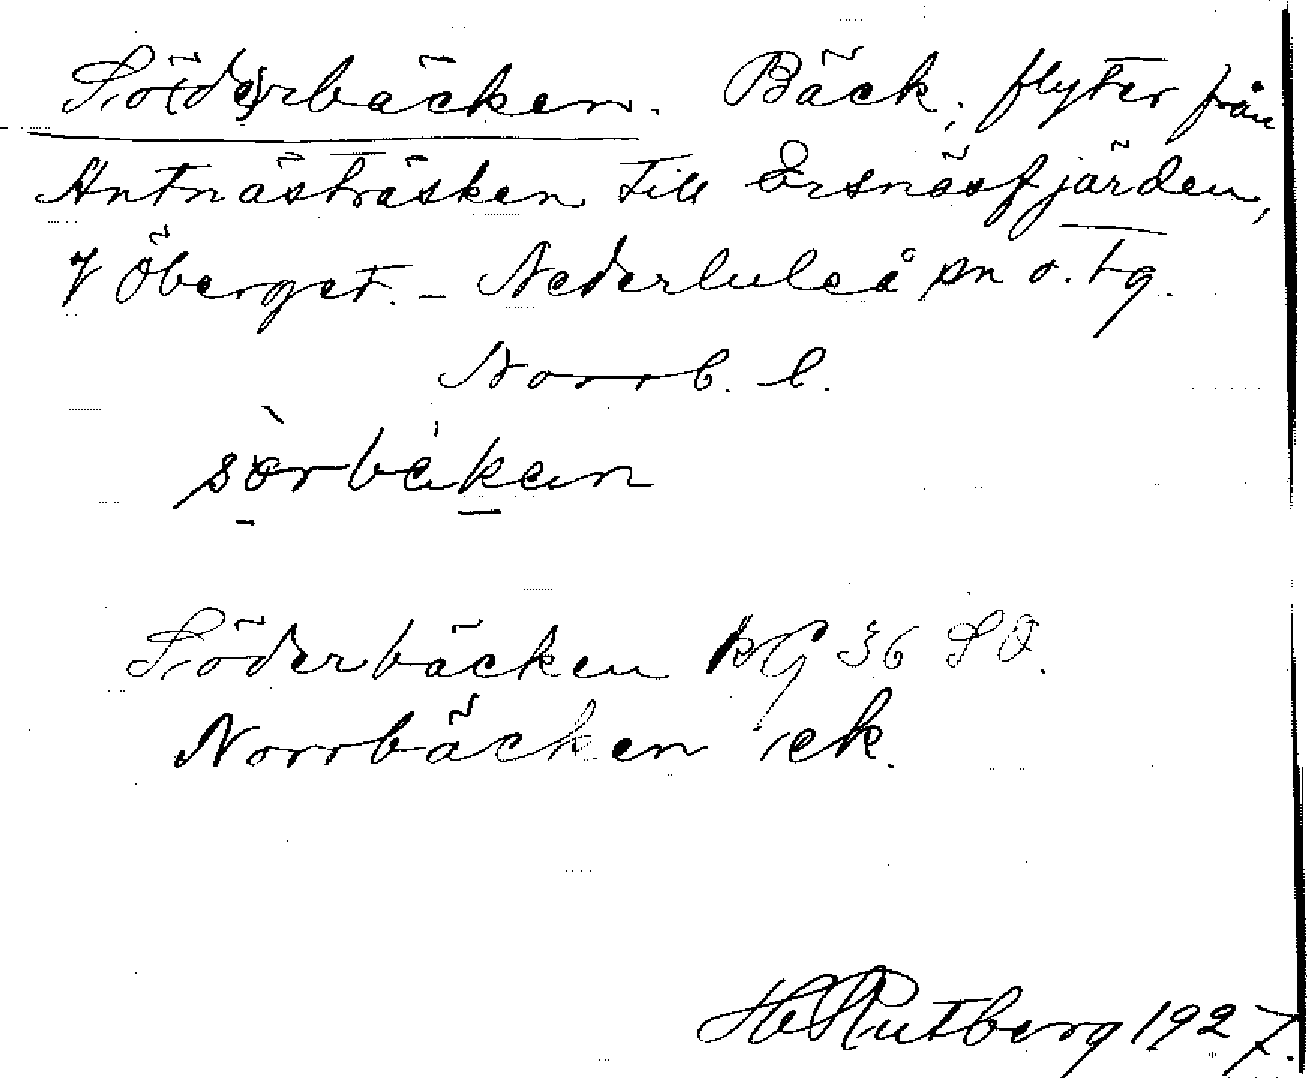 Sö(de)rbäcken. Bäck, flyter från
Antnästräsken till Ersnäsfjärden,
V Öberget. – Nederluleå sn o. tg.
Norrb. l.
Söderbäcken kG 36 SO.
Norrbäcken ek.
H Rutberg 1927.